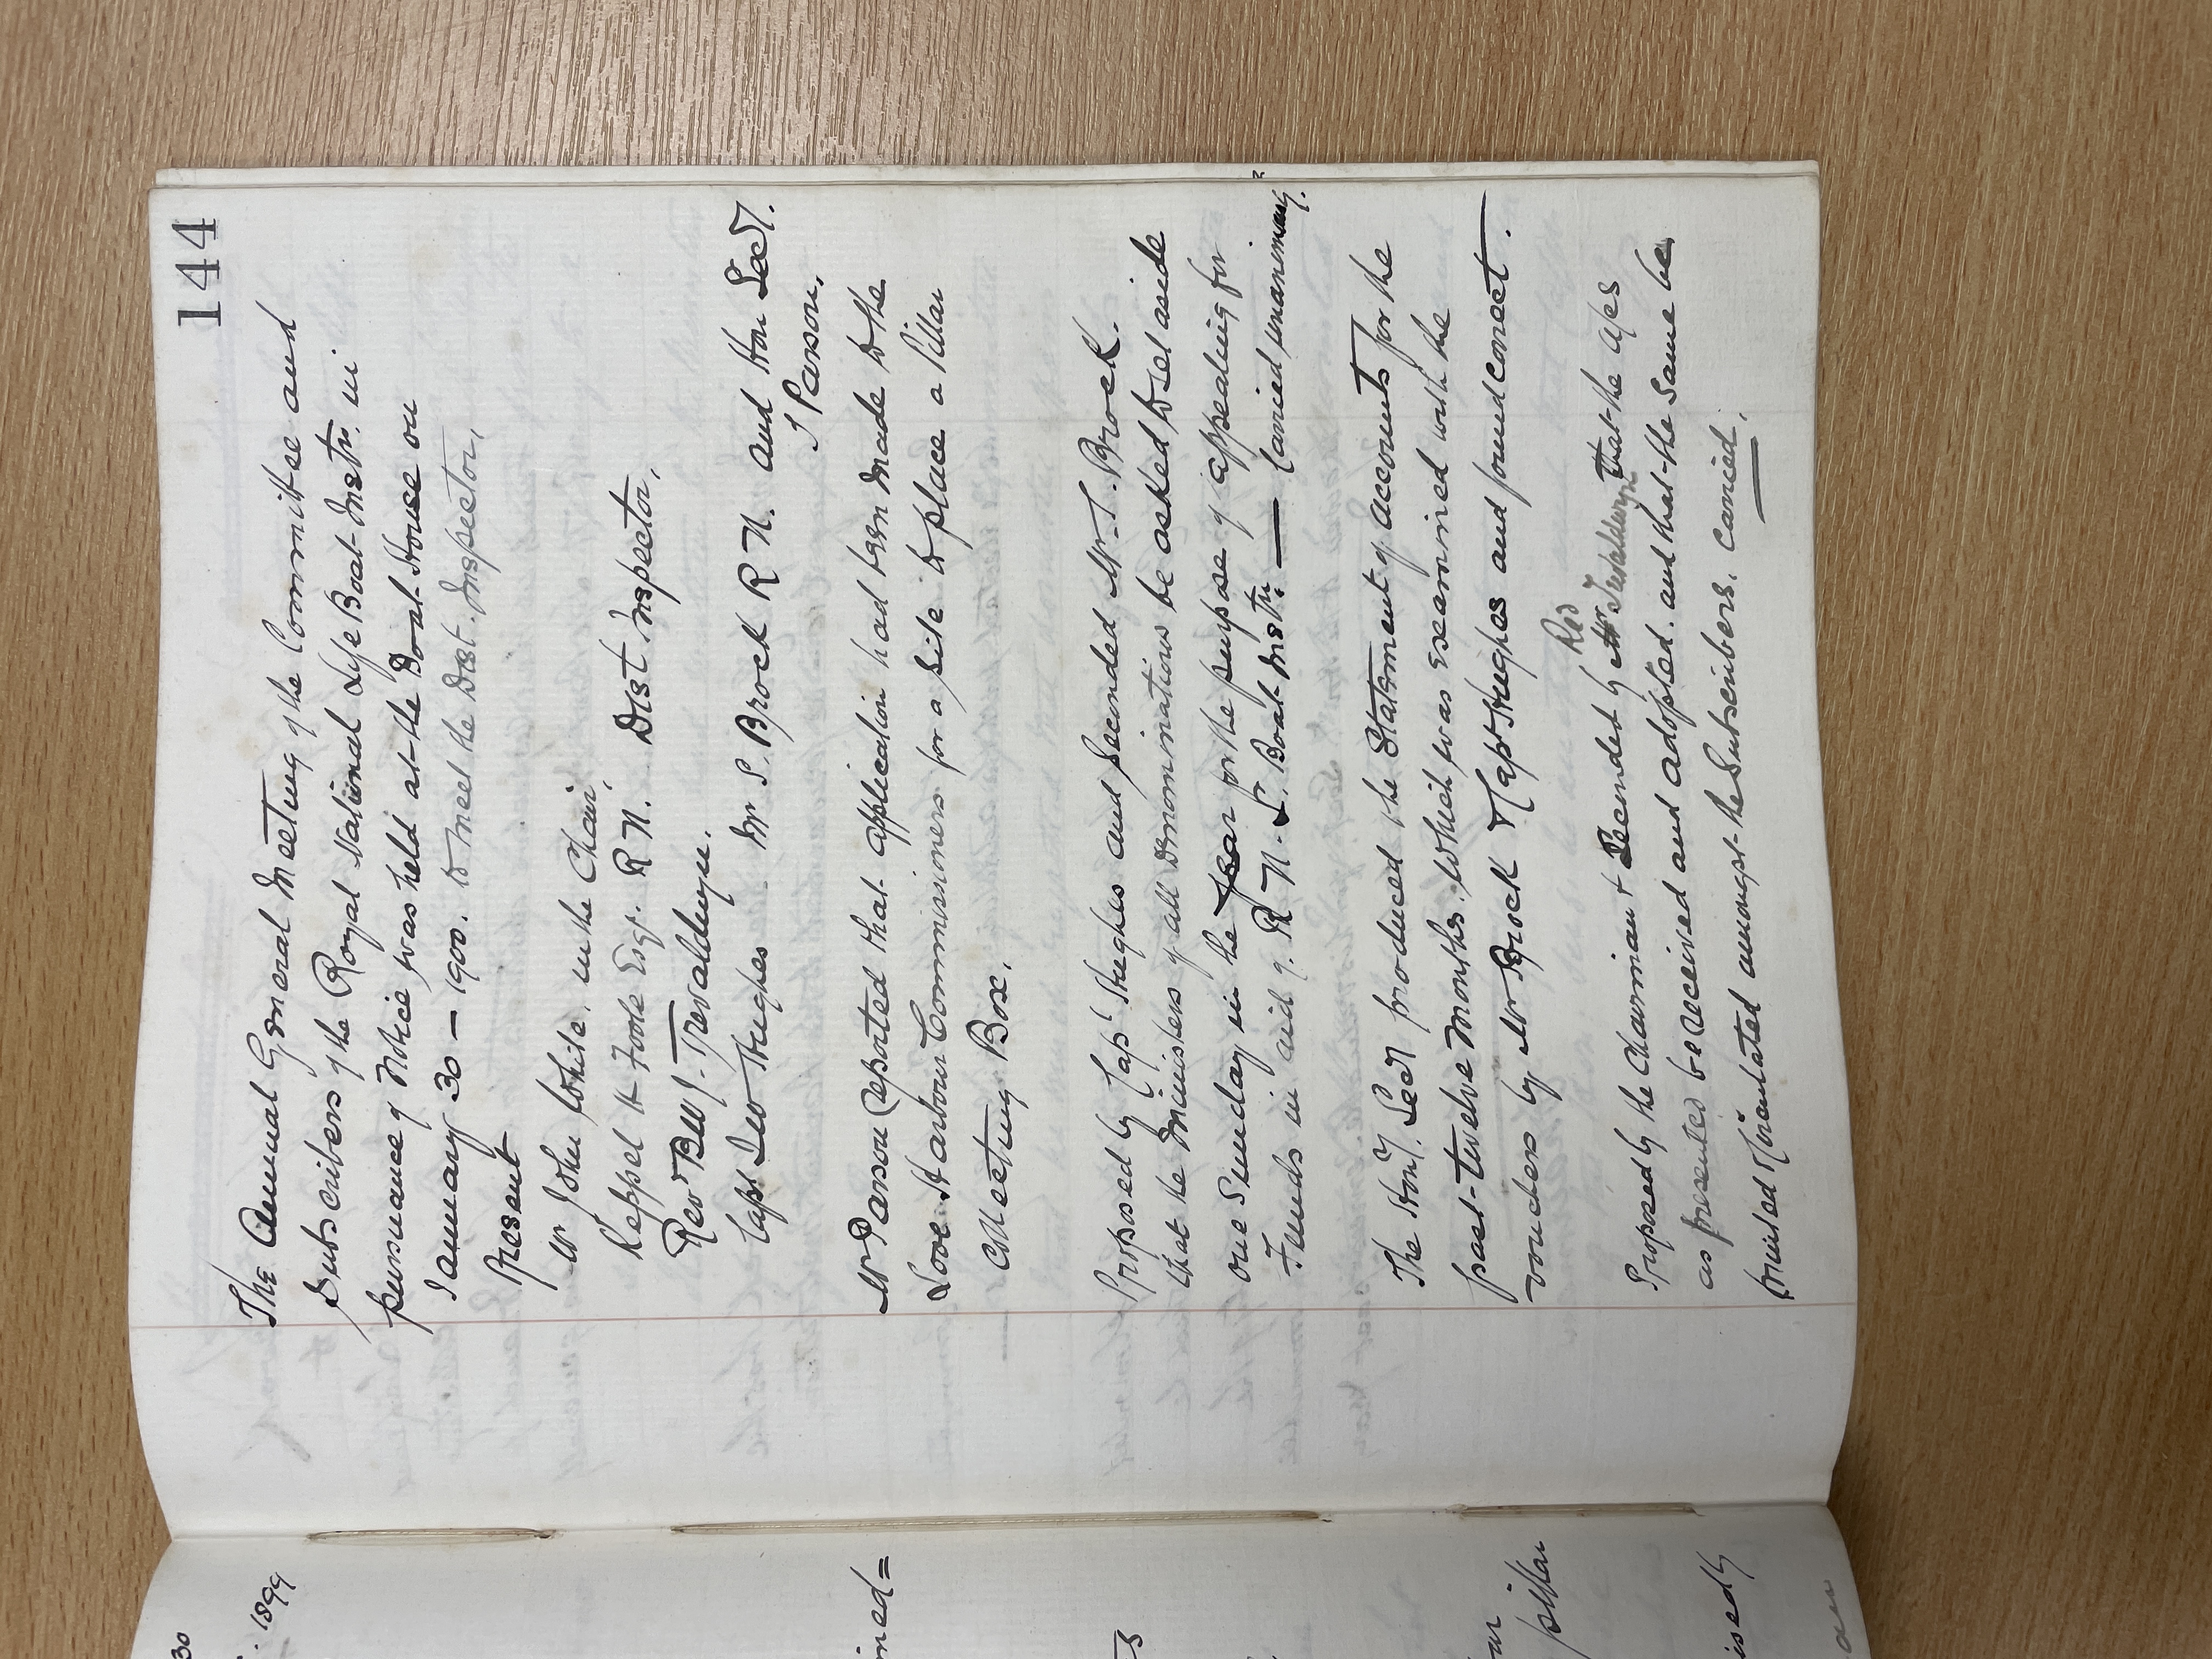 144
The Annual General Meeting of the Committee and
Subscribers of the Royal National Life Boat Instn. in
pursuance of Notice was held at the Boat House on
January 30 – 1900. to meet the Dist. Inspector,
Present
Mr John White, in the Chair,
Keppel H Foote Esqr. R N. Dist Inspector,
Revd Benj. Trevaldwyn.
Capt Hughes Mr S. Brock R N. and Hon Secy.
J Parson,
Mr Parson reported that application had been made to the
Looe Harbour Commissioners for a site to place a Pillar
Collecting Box.
Proposed by Capt Hughes and Seconded Mr J. Brock.
that the Ministers of all Denominations be asked to set aside
one Sunday in the year for the purpose of appealing for
Funds in aid of R N. L. Boat Instn. — Carried unanimously.
The Hony. Secy produced the Statement of accounts for the
past twelve months. Which was examined with the
vouchers by Mr Brock & Capt Hughes and found correct.
Proposed by the Chairman & Seconded by Rev Trevaldwyn that the a/cs
as presented be received and adopted. and that the same be
printed & circulated amongst the Subscribers. Carried.
30
1899
ined=
pillar